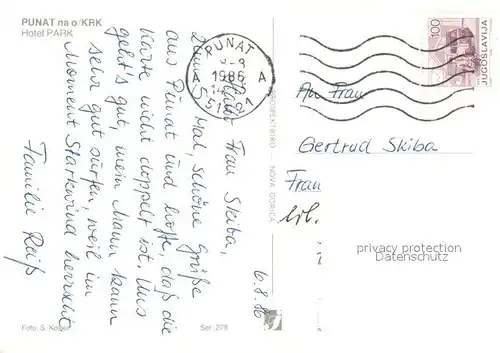 PUNAT na o/KRK
Hotel PARK
Liebe Frau Skiba,
zum Mal, schöne Grüße
aus Punat und hoffe, daß die
Karte nicht doppelt ist. Uns
geht's gut, mein Mann kann
sehr gut surfen, weil im
Moment Starkwind herrscht
Familie Reiß
6.8.86
PUNAT
1986
A A
51521
100
JUGOSLAVIJA
An Frau
Gertrud Skiba
Frau
privacy protection
Datenschutz
NOVA GORICA
Foto: S.
Ser. 273